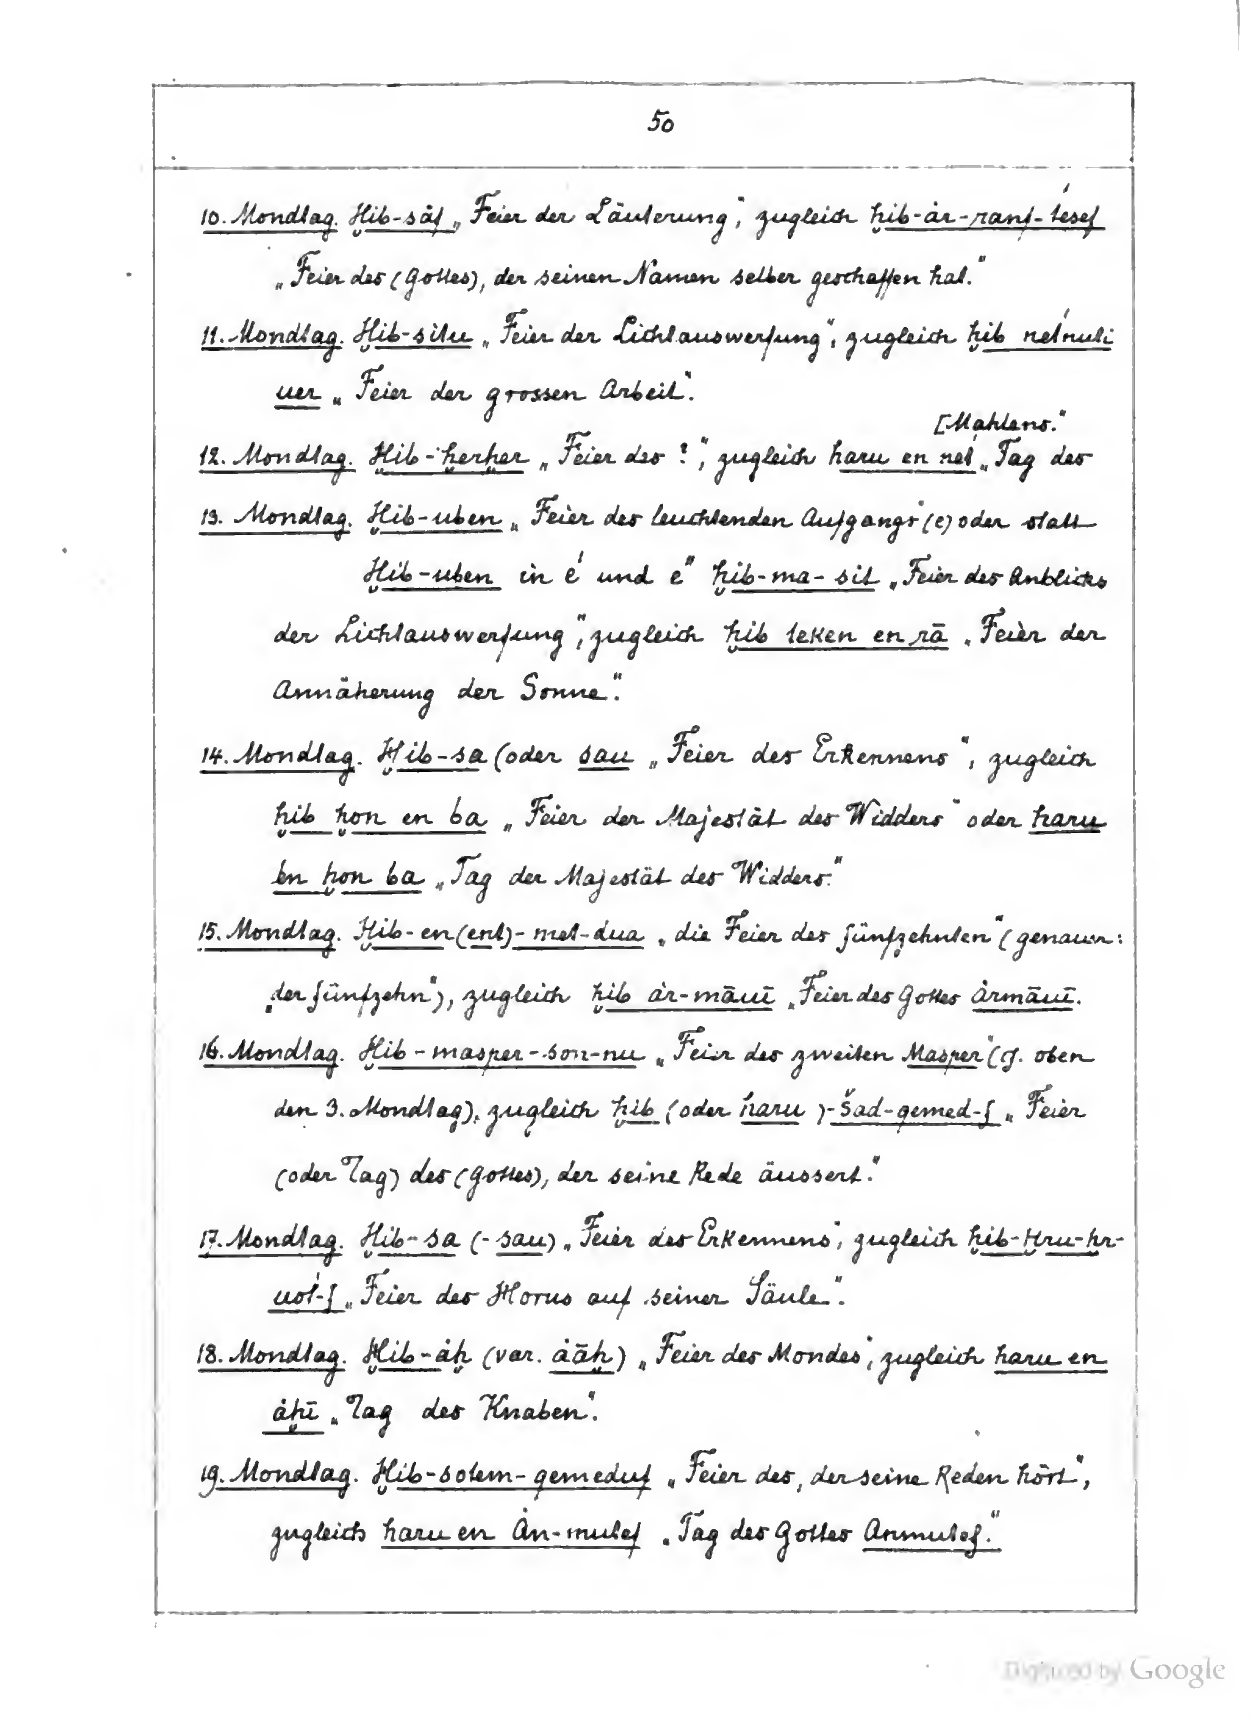 50
10. Mondtag. Ḥib-sȧf „Feier der Läuterung“, zugleich ḥib-ȧr-ranf-t'esef
„Feier des (Gottes), der seinen Namen selber geschaffen hat.“
11. Mondtag. Ḥib-situ „Feier der Lichtauswerfung“, zugleich ḥib net'nuti
uer „Feier der grossen Arbeit“.
[Mahlens.“
12. Mondtag. Ḥib-ḥerḥer „Feier des ?“, zugleich haru en net' „Tag des
13. Mondtag. Ḥib-uben „Feier des leuchtenden Aufgangs“ (e) oder statt
Ḥib-uben in e' und e" ḥib-ma-sit „Feier des Anblicks
der Lichtauswerfung“, zugleich ḥib teken en rā „Feier der
Annäherung der Sonne“.
14. Mondtag. Ḥib-sa (oder sau „Feier des Erkennens“, zugleich
ḥib ḥon en ba „Feier der Majestät des Widders“ oder haru
en ḥon ba „Tag der Majestät des Widders.“
15. Mondtag. Ḥib-en(ent)-met-dua „die Feier des fünfzehnten“ (genauer:
„der fünfzehn“), zugleich ḥib ȧr-māuī „Feier des Gottes Ȧrmāuī.
16. Mondtag. Ḥib-masper-son-nu „Feier des zweiten Masper“ (cf. oben
den 3. Mondtag), zugleich ḥib (oder haru)-šad-qemed-f „Feier
(oder Tag) des (Gottes), der seine Rede äussert.“
17. Mondtag. Ḥib-sa (-sau) „Feier des Erkennens“, zugleich ḥib-Ḥru-ḥr-
uot'-f „Feier des Horus auf seiner Säule“.
18. Mondtag. Ḥib-ȧḥ (var. ȧāḥ) „Feier des Mondes“, zugleich haru en
ȧḥī „Tag des Knaben“.
19. Mondtag. Ḥib-sotem-qemeduf „Feier des, der seine Reden hört“,
zugleich haru en Ȧn-mutef „Tag des Gottes Anmutef.“
Digitized by Google